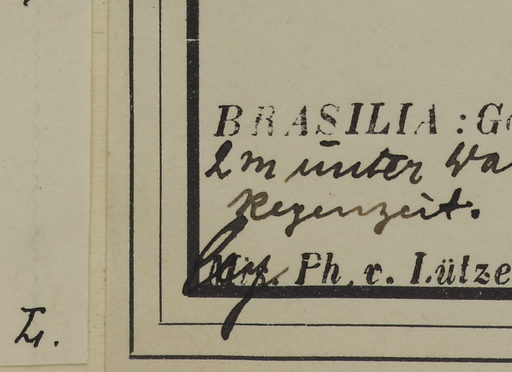 BRASILIA : Go
2 m unter Wa
Regenzeit.
Ph. v. Lütze